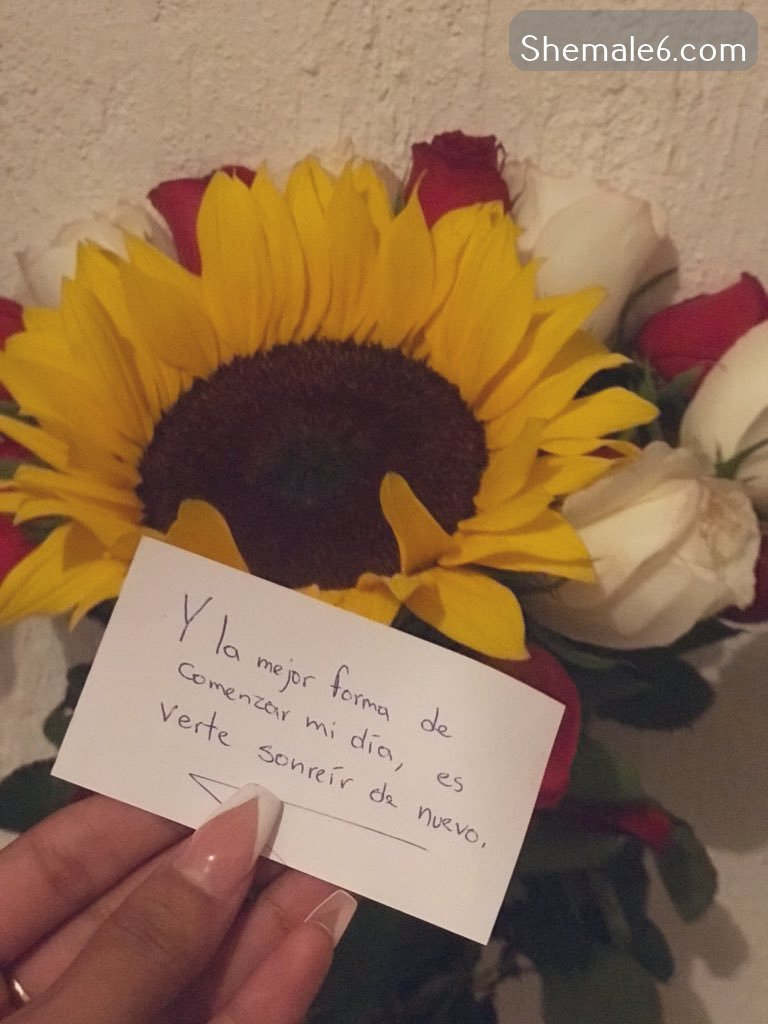 Shemale6.com
Y la mejor forma de
comenzar mi día, es
verte sonreír de nuevo.